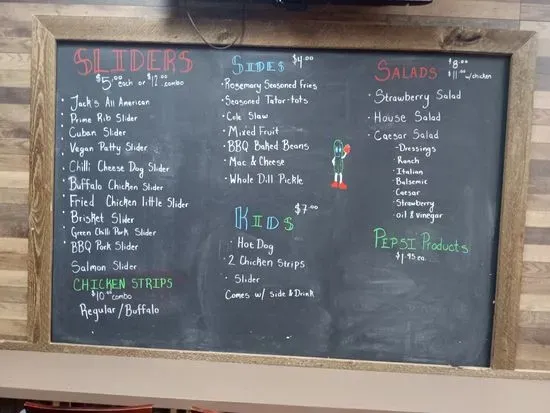 SLIDERS
$5.00 each or $12.00 combo
· Jack's All American
· Prime Rib Slider
· Cuban Slider
· Vegan Patty Slider
· Chilli Cheese Dog Slider
· Buffalo Chicken Slider
· Fried Chicken little Slider
· Brisket Slider
· Green Chilli Pork Slider
· BBQ Pork Slider
Salmon Slider
CHICKEN STRIPS
$10.00 combo
Regular/Buffalo
SIDES $4.00
· Rosemary Seasoned Fries
· Seasoned Tator-tots
· Cole Slaw
· Mixed Fruit
· BBQ Baked Beans
· Mac & Cheese
· Whole Dill Pickle
KIDS $7.00
· Hot Dog
· 2 Chicken Strips
· Slider
Comes w/ side & Drink
SALADS $8.00
$11.00 w/chicken
· Strawberry Salad
· House Salad
· Caesar Salad
- Dressings
· Ranch
· Italian
· Balsemic
· Caesar
· Strawberry
· oil & vinegar
PEPSI Products
$1.95 ea.